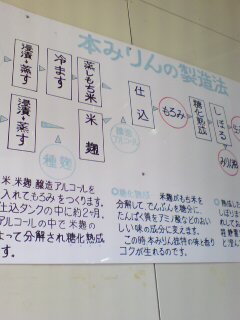 本みりんの製造法
浸漬・蒸す
冷ます
蒸しもち米
仕込
もろみ
糖化熟成
しぼる
浸漬・蒸す
米麹
種麹
醸造
アルコール
米、米麹、醸造アルコールを
入れてもろみをつくります。
仕込タンクの中に約2ヶ月、
アルコールの中で米麹の
よって分解され糖化熟成
す。
糖化熟成 米麹がもち米を
分解して、でんぷんを糖分に、
たんぱく質をアミノ酸などのおい
しい味の成分に変えます。
この時本みりん独特の味と香り
コクが生れるのです。